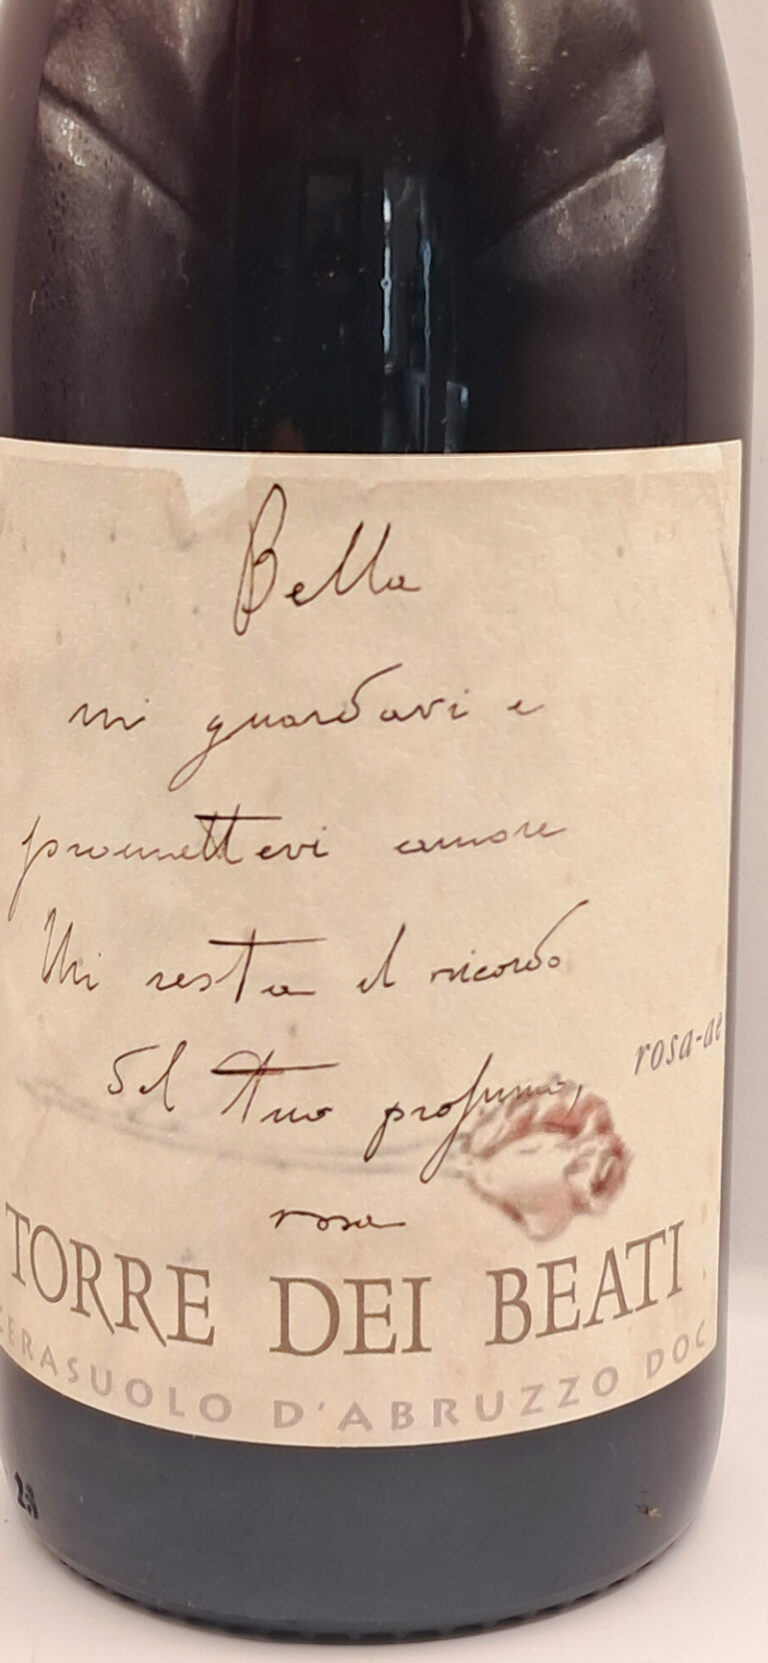 Bella
mi guardavi e
promettevi amore
Mi resta il ricordo
del tuo profumo,
rosa
rosa-ae
TORRE DEI BEATI
CERASUOLO D'ABRUZZO DOC